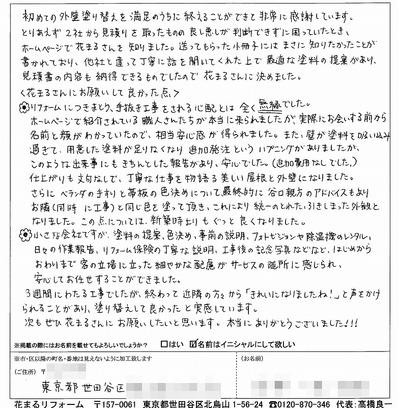 初めての外壁塗り替えを満足のうちに終えることができて非常に感謝しています。
とりあえず2社から見積りを取ったものの良し悪しが判断できずに困っていたとき、
ホームページで花まるさんを知りました。送ってもらった小冊子にはまさに知りたかったことが
書かれており、他社と違って丁寧に話を聞いてくれた上で最適な塗料の提案があり、
見積書の内容も納得できるものでしたので花まるさんに決めました。
<花まるさんにお願いして良かった点>
リフォームにつきまとう、手抜き工事をされる心配とは全く無縁でした。
ホームページで紹介されている職人さんたちが本当に来られましたが、実際にお会いする前から
名前と顔がわかっていたので、相当安心感が得られました。また、壁が塗料を吸い込み
過ぎて、用意した塗料が足りなくなり追加発注というハプニングがありましたが、
このような出来事にもきちんとした報告があり、安心でした。(追加費用なしでした。)
仕上がりも文句なしで、丁寧な仕事を物語る美しい屋根と外壁になりました。
さらにベランダの手すりと帯板の色決めについて最終的に谷口親方のアドバイスもあり
お隣(同時に工事)と同じ色を塗って頂き、これにより統一のとれた、引きしまった外観と
なりました。この点については、新築時よりもぐっと良くなりました。
小さな会社ですが、塗料の提案、色決め、事前の説明、フォトビジョンや除湿機のレンタル、
日々の作業報告、リフォーム保険の丁寧な説明、工事後の記念写真などなど、はじめから
おわりまで客の立場に立った細やかな配慮がサービスの随所に感じられ、
安心してお任せすることができました。
3週間にわたる工事でしたが、終わって近隣の方々から「きれいになりましたね!」と声をかけ
られることがあり、塗り替えして良かったと実感しています。
次もぜひ花まるさんにお願いしたいと思います。本当にありがとうございました!!!
※掲載の際にはお名前を載せてもよろしいでしょうか? □はい ☑名前はイニシャルにして欲しい
※市・区以降の町名・番地は見えないように加工致します
(ご住所) 〒
(お名前)
東京都世田谷区
花まるリフォーム 〒157-0061 東京都世田谷区北烏山1-56-24 ☎0120-870-346 代表:高橋良一